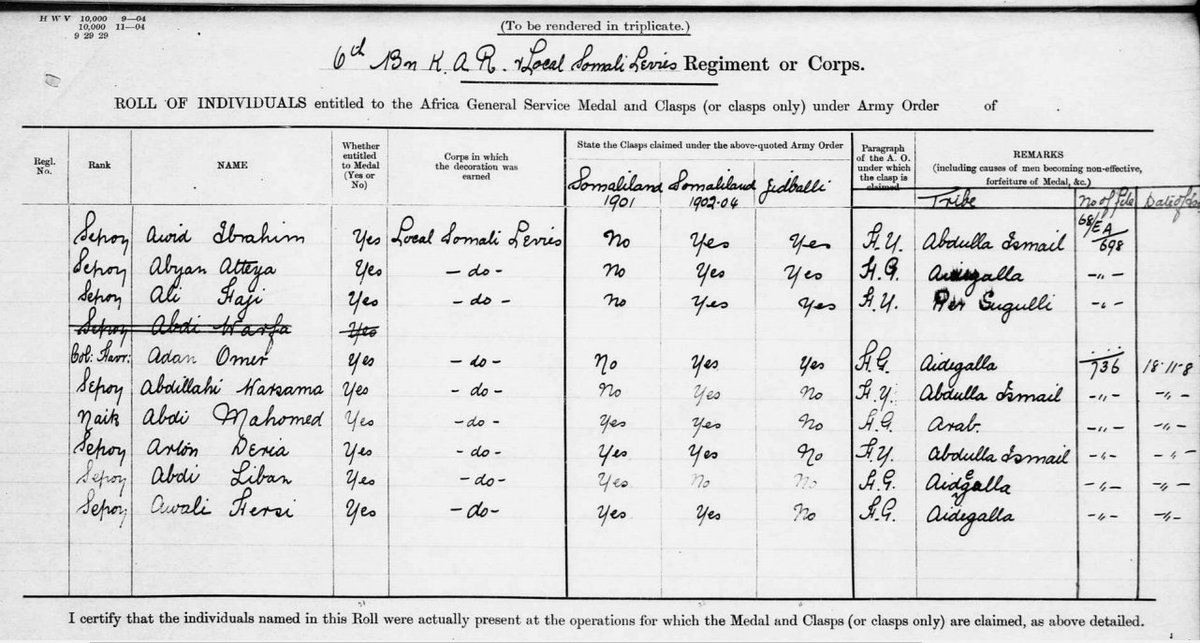 H W V 10,000 9—04
10,000 11—04
9 29 29
(To be rendered in triplicate.)
6th Bn K. A. R. & Local Somali Levies Regiment or Corps.
ROLL OF INDIVIDUALS entitled to the Africa General Service Medal and Clasps (or clasps only) under Army Order of .
Regl. No. Rank NAME Whether entitled to Medal (Yes or No) Corps in which the decoration was earned State the Clasps claimed under the above-quoted Army Order Paragraph of the A. O. under which the clasp is claimed REMARKS (including causes of men becoming non-effective, forfeiture of Medal, &c.)
Somaliland 1901 Somaliland 1902-04 Jidballi Tribe No of file Date of
68/EA
Sepoy Awid Ibrahim Yes Local Somali Levies No Yes Yes H.Y. Abdulla Ismail 698
Sepoy Abyan Atteya Yes — do — No Yes Yes H.G. Aidegalla — " —
Sepoy Ali Haji Yes — do — No Yes Yes H.Y. Rer Sugulli — " —
Sepoy Abdi Warfa Yes
Col: Havr: Adan Omer Yes — do — No Yes Yes H.G. Aidegalla 736 18·11·8
Sepoy Abdillahi Warsama Yes — do — No Yes No H.Y. Abdulla Ismail — " — — " —
Naik Abdi Mahomed Yes — do — Yes Yes No H.G. Arab. — " — — " —
Sepoy Arlon Deria Yes — do — Yes Yes No H.Y. Abdulla Ismail — " — — " —
Sepoy Abdi Liban Yes — do — Yes No No H.G. Aidegalla — " — — " —
Sepoy Awali Hersi Yes — do — Yes Yes No H.G. Aidegalla — " — — " —
I certify that the individuals named in this Roll were actually present at the operations for which the Medal and Clasps (or clasps only) are claimed, as above detailed.